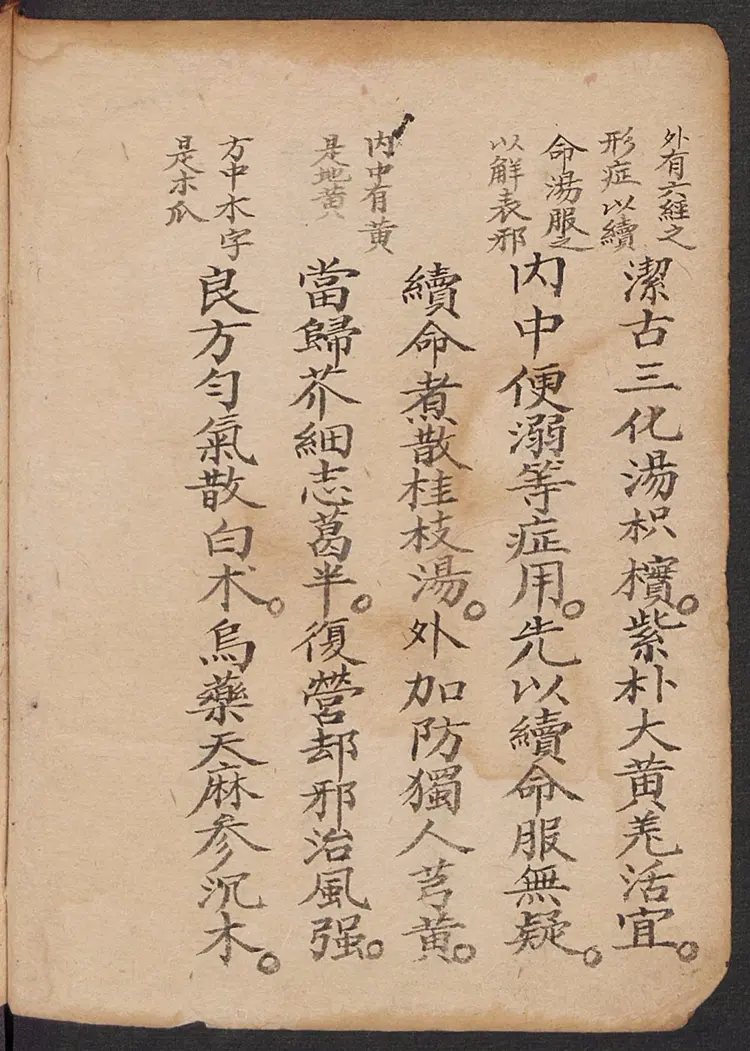 外有六經之
形症以續
命湯服之
以解表邪
内中有黃
是地黃
方中木字
是木瓜
潔古三化湯枳檳。紫朴大黃羌活宜。
内中便溺等症用。先以續命服無疑。
續命煮散桂枝湯。外加防獨人芎黃。
當歸芥細志葛半。復營却邪治風强。
良方勻氣散白朮。烏藥天麻參沉木。